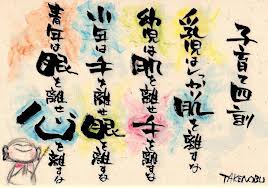 子育て四訓
乳児はしっかり肌を離すな
幼児は肌を離せ手を離すな
少年は手を離せ眼を離すな
青年は眼を離せ心を離すな
TAKENOBU